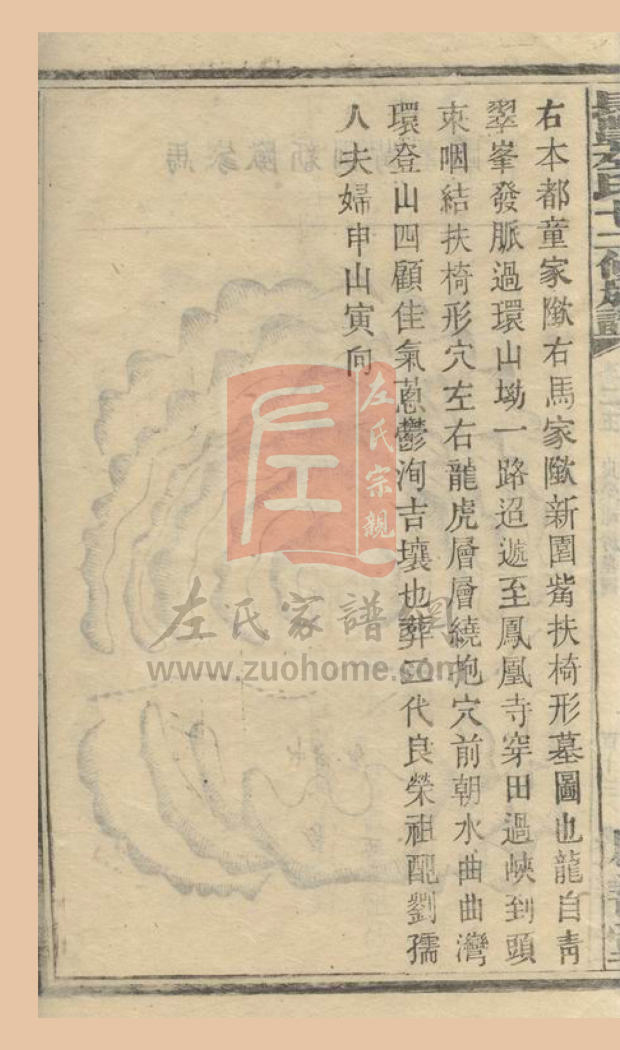 右本都童家隞右馬家隞新圍觜扶椅形墓圖也龍自青
翠峯發脈過環山坳一路迢遞至鳳凰寺穿田過峽到頭
束咽結扶椅形穴左右龍虎層層繞抱穴前朝水曲曲灣
環登山四顧佳氣蔥鬱洵吉壤也葬三代良榮祖配劉孺
人夫婦申山寅向
左氏宗親
左氏家譜網
www.zuohome.com